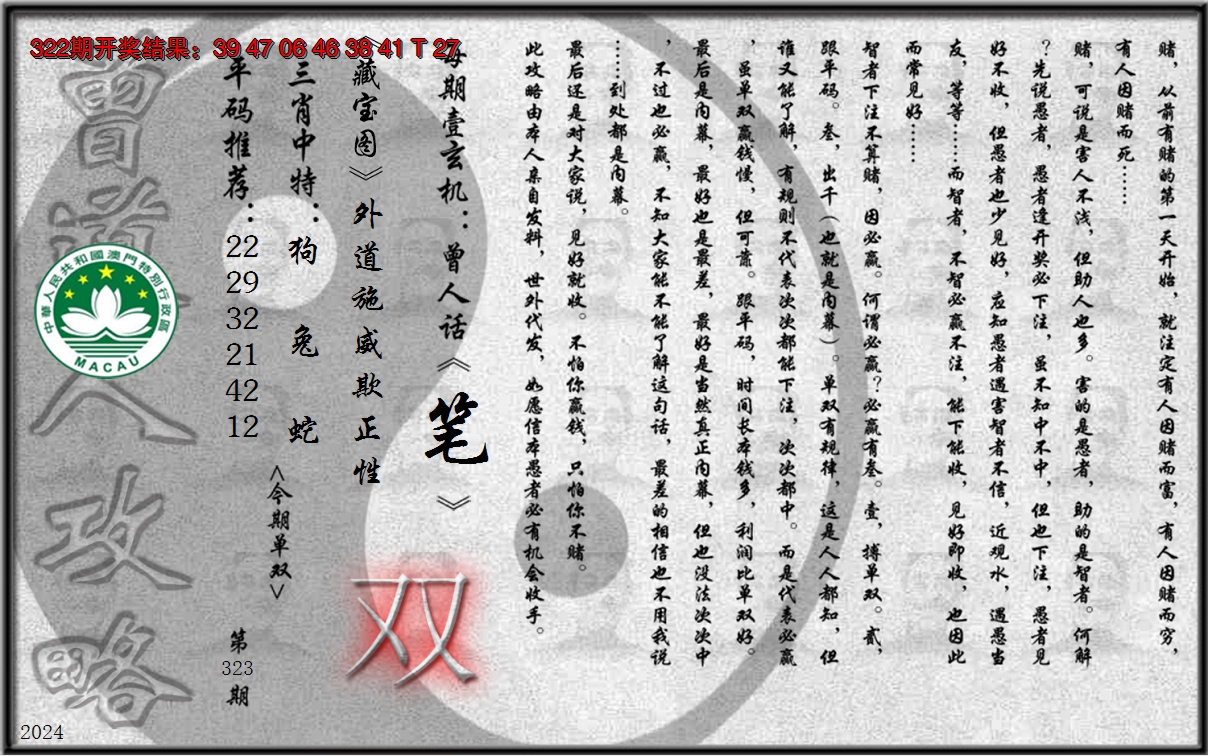 322期开奖结果：39 47 06 46 38 41 T 27
赌，从前有赌的第一天开始，就注定有人因赌而富，有人因赌而穷，
有人因赌而死……
赌，可说是害人不浅，但助人也多。害的是愚者，助的是智者。何解
？先说愚者，愚者逢开奖必下注，虽不知中不中，但也下注，愚者见
好不收，但愚者也少见好，应知愚者遇害智者不信，近观水，遇愚当
友，等等……而智者，不智必赢不注，能下能收，见好即收，也因此
而常见好……
智者下注不算赌，因必赢。何谓必赢？必赢有叁。壹，搏单双。贰，
跟平码。叁，出千（也就是内幕）。单双有规律，这是人人都知，但
谁又能了解，有规则不代表次次都能下注，次次都中。而是代表必赢
，虽单双赢钱慢，但可靠。跟平码，时间长本钱多，利润比单双好。
最后是内幕，最好也是最差，最好是当然真正内幕，但也没法次次中
，不过也必赢，不知大家能不能了解这句话，最差的相信也不用我说
……到处都是内幕。
最后还是对大家说，见好就收。不怕你赢钱，只怕你不赌。
此攻略由本人亲自发料，世外代发，如愿信本愚者必有机会收手。
每期壹玄机：曾人话《笔》
《藏宝图》外道施威欺正性
双
三肖中特：狗 兔 蛇
<今期单双>
平码推荐：
22
29
32
21
42
12
第
323
期
曾道人攻略
中華人民共和國澳門特別行政區
MACAU
2024